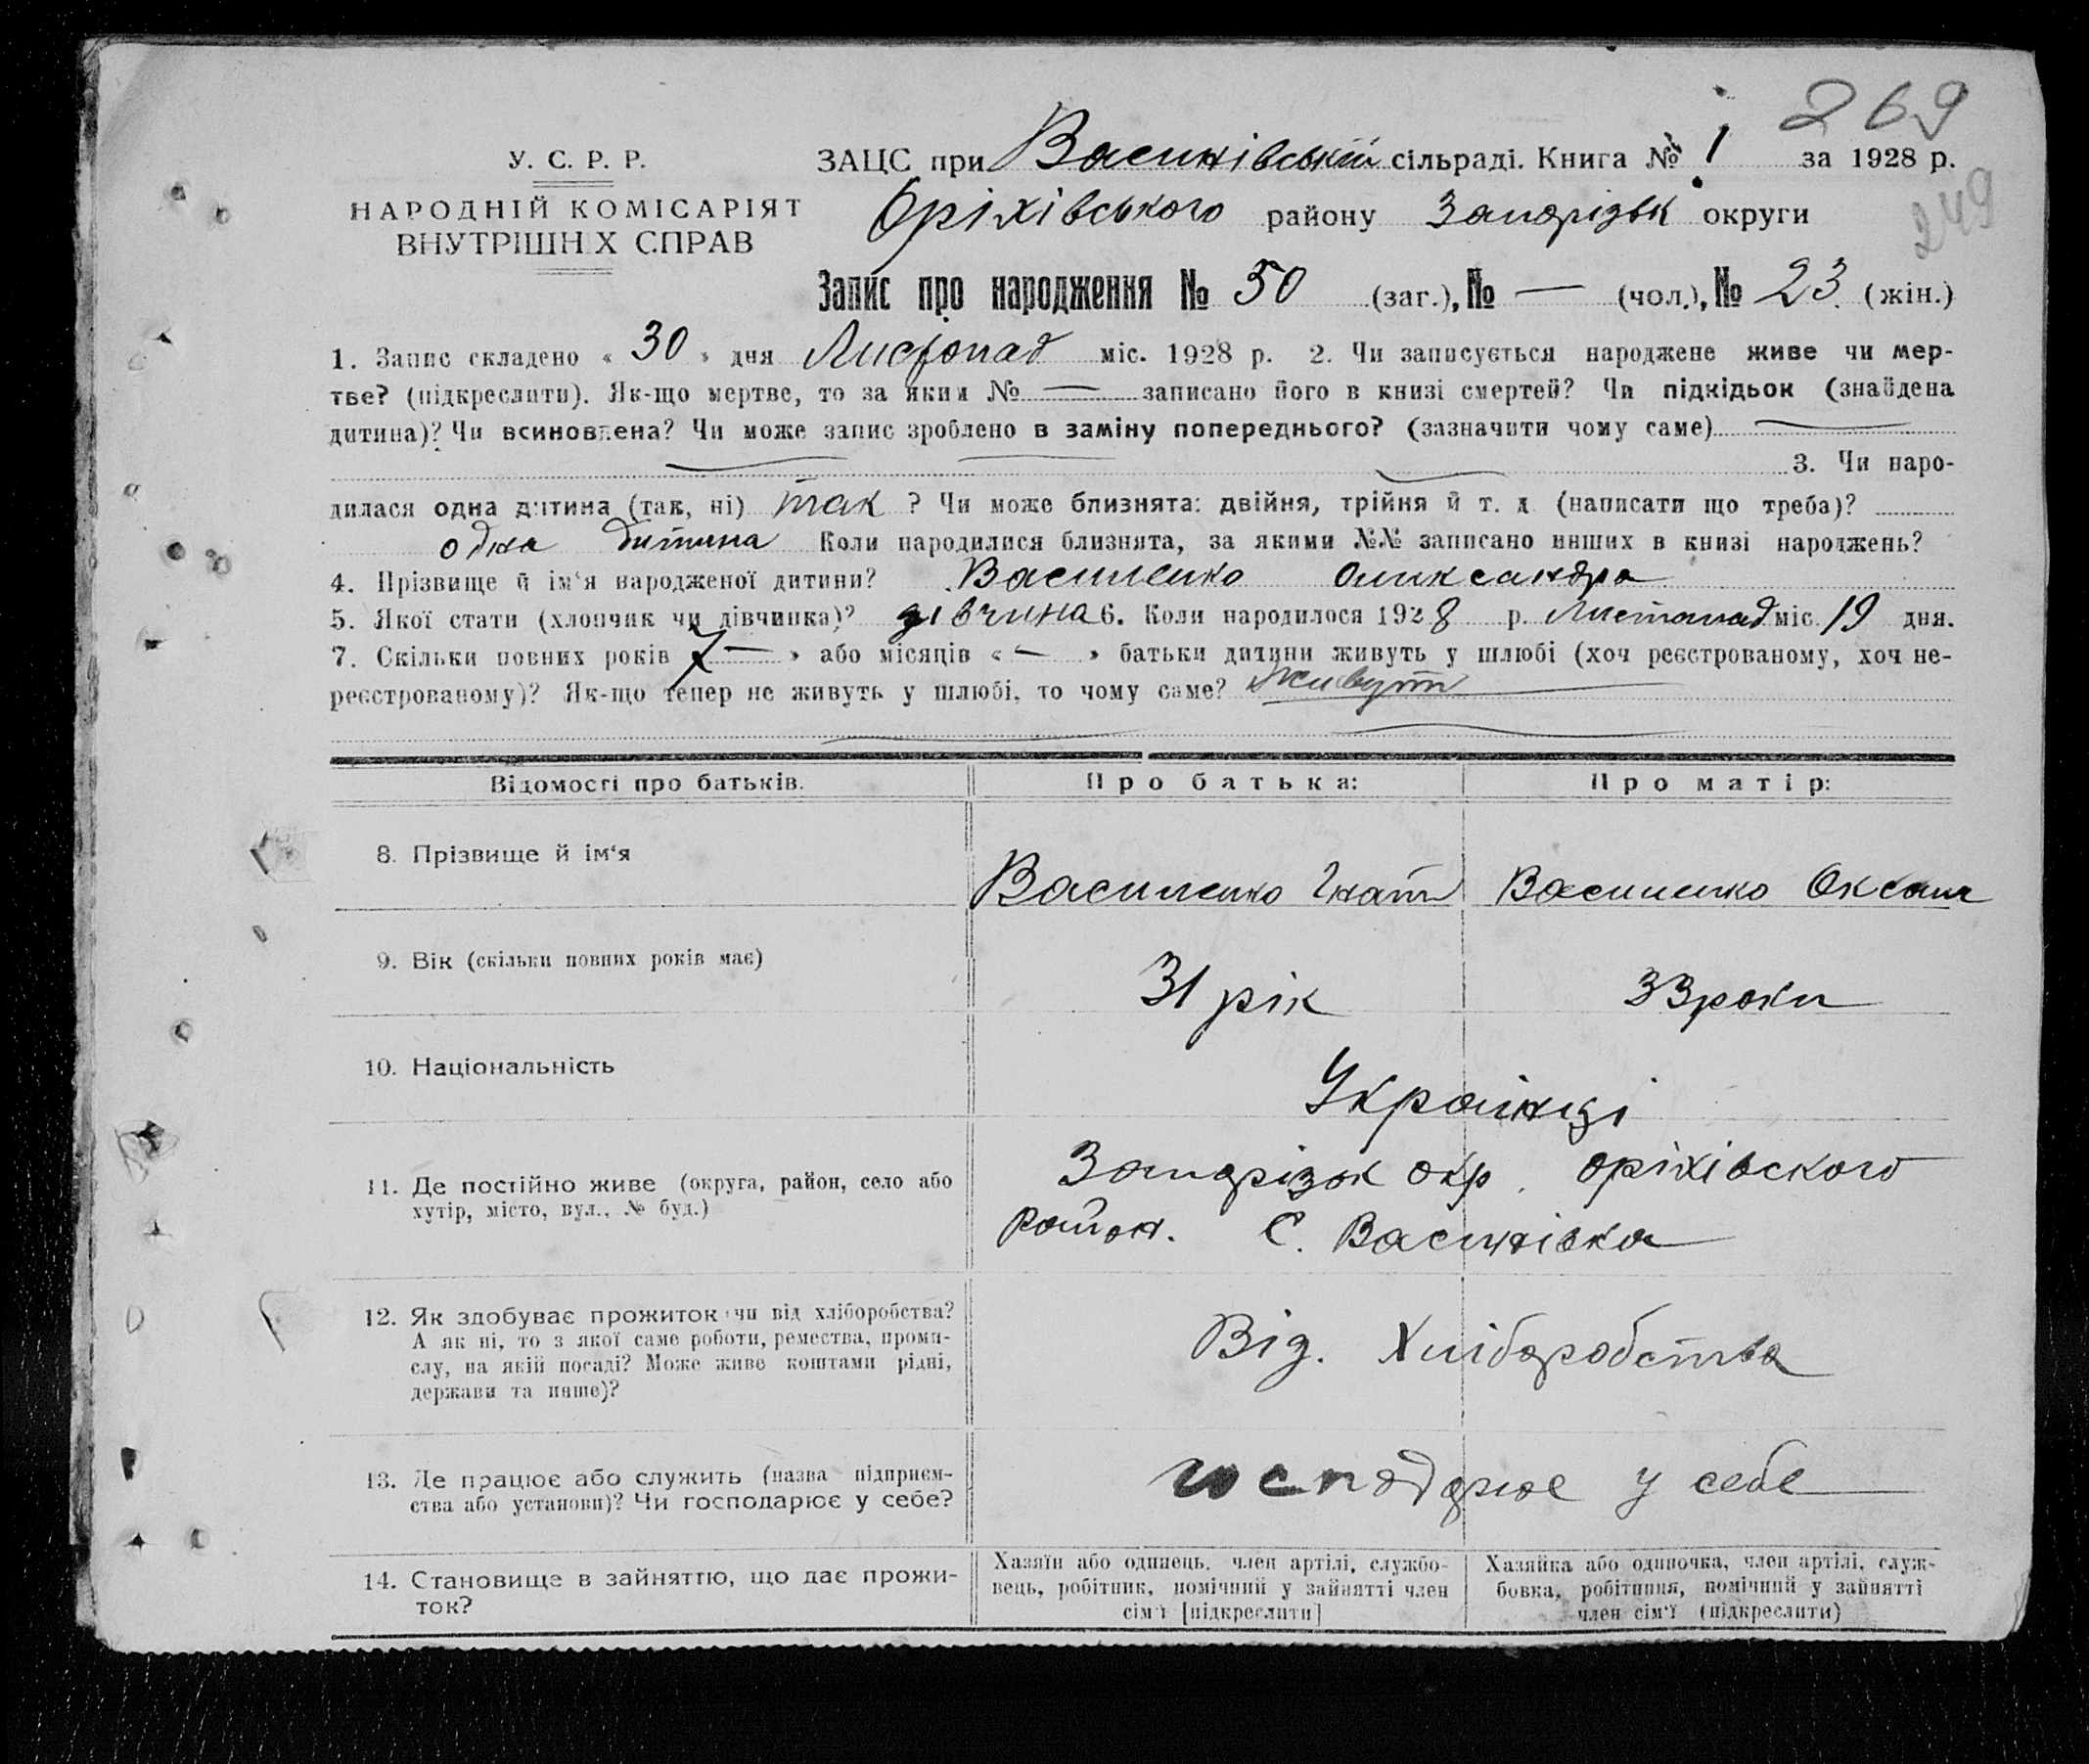 269
У. С. Р. Р.
НАРОДНІЙ КОМІСАРІЯТ
ВНУТРІШН Х СПРАВ
ЗАЦС при Василівській сільраді. Книга № 1 за 1928 р.
249
Оріхівського району Запорізьк округи
Запис про народження № 50 (заг.), № — (чол.), № 23 (жін.)
1. Запис складено « 30 » дня Листопад міс. 1928 р. 2. Чи записується народжене живе чи мер-
тве? (підкреслити). Як-що мертве, то за яким № — записано його в книзі смертей? Чи підкідьок (знайдена
дитина)? Чи всиновлена? Чи може запис зроблено в заміну попереднього? (зазначити чому саме)
3. Чи наро-
дилася одна дитина (так, ні) так ? Чи може близнята: двійня, трійня й т. д. (написати що треба)?
одна дитина Коли народилися близнята, за якими №№ записано инших в книзі народжень?
4. Прізвище й ім‘я народженої дитини? Василенко Олександра
5. Якої стати (хлопчик чи дівчинка)? дівчина 6. Коли народилося 1928 р. листопад міс. 19 дня.
7. Скільки повних років 7 — » або місяців « — » батьки дитини живуть у шлюбі (хоч реєстрованому, хоч не-
реєстрованому)? Як-що тепер не живуть у шлюбі, то чому саме? Живут
Відомості про батьків.
Про батька:
Про матір:
8. Прізвище й ім‘я
Василенко Гнат
Василенко Оксана
9. Вік (скільки повних років має)
31 рік
33 роки
10. Національність
Українці
11. Де постійно живе (округа, район, село або
хутір, місто, вул., № буд.)
Запорізьк окр. оріхівского
район. С. Василівка
12. Як здобуває прожиток чи від хліборобства?
А як ні, то з якої саме роботи, ремества, проми-
слу, на якій посаді? Може живе коштами рідні,
держави та инше)?
Від. Хліборобства
13. Де працює або служить (назва підприєм-
ства або установи)? Чи господарює у себе?
господарює у себе
14. Становище в зайняттю, що дає прожи-
ток?
Хазяїн або одинець, член артілі, службо-
вець, робітник, помічний у зайнятті член
сім‘ї [підкреслити]
Хазяйка або одиночка, член артілі, служ-
бовка, робітниця, помічний у зайнятті
член сім‘ї (підкреслити)